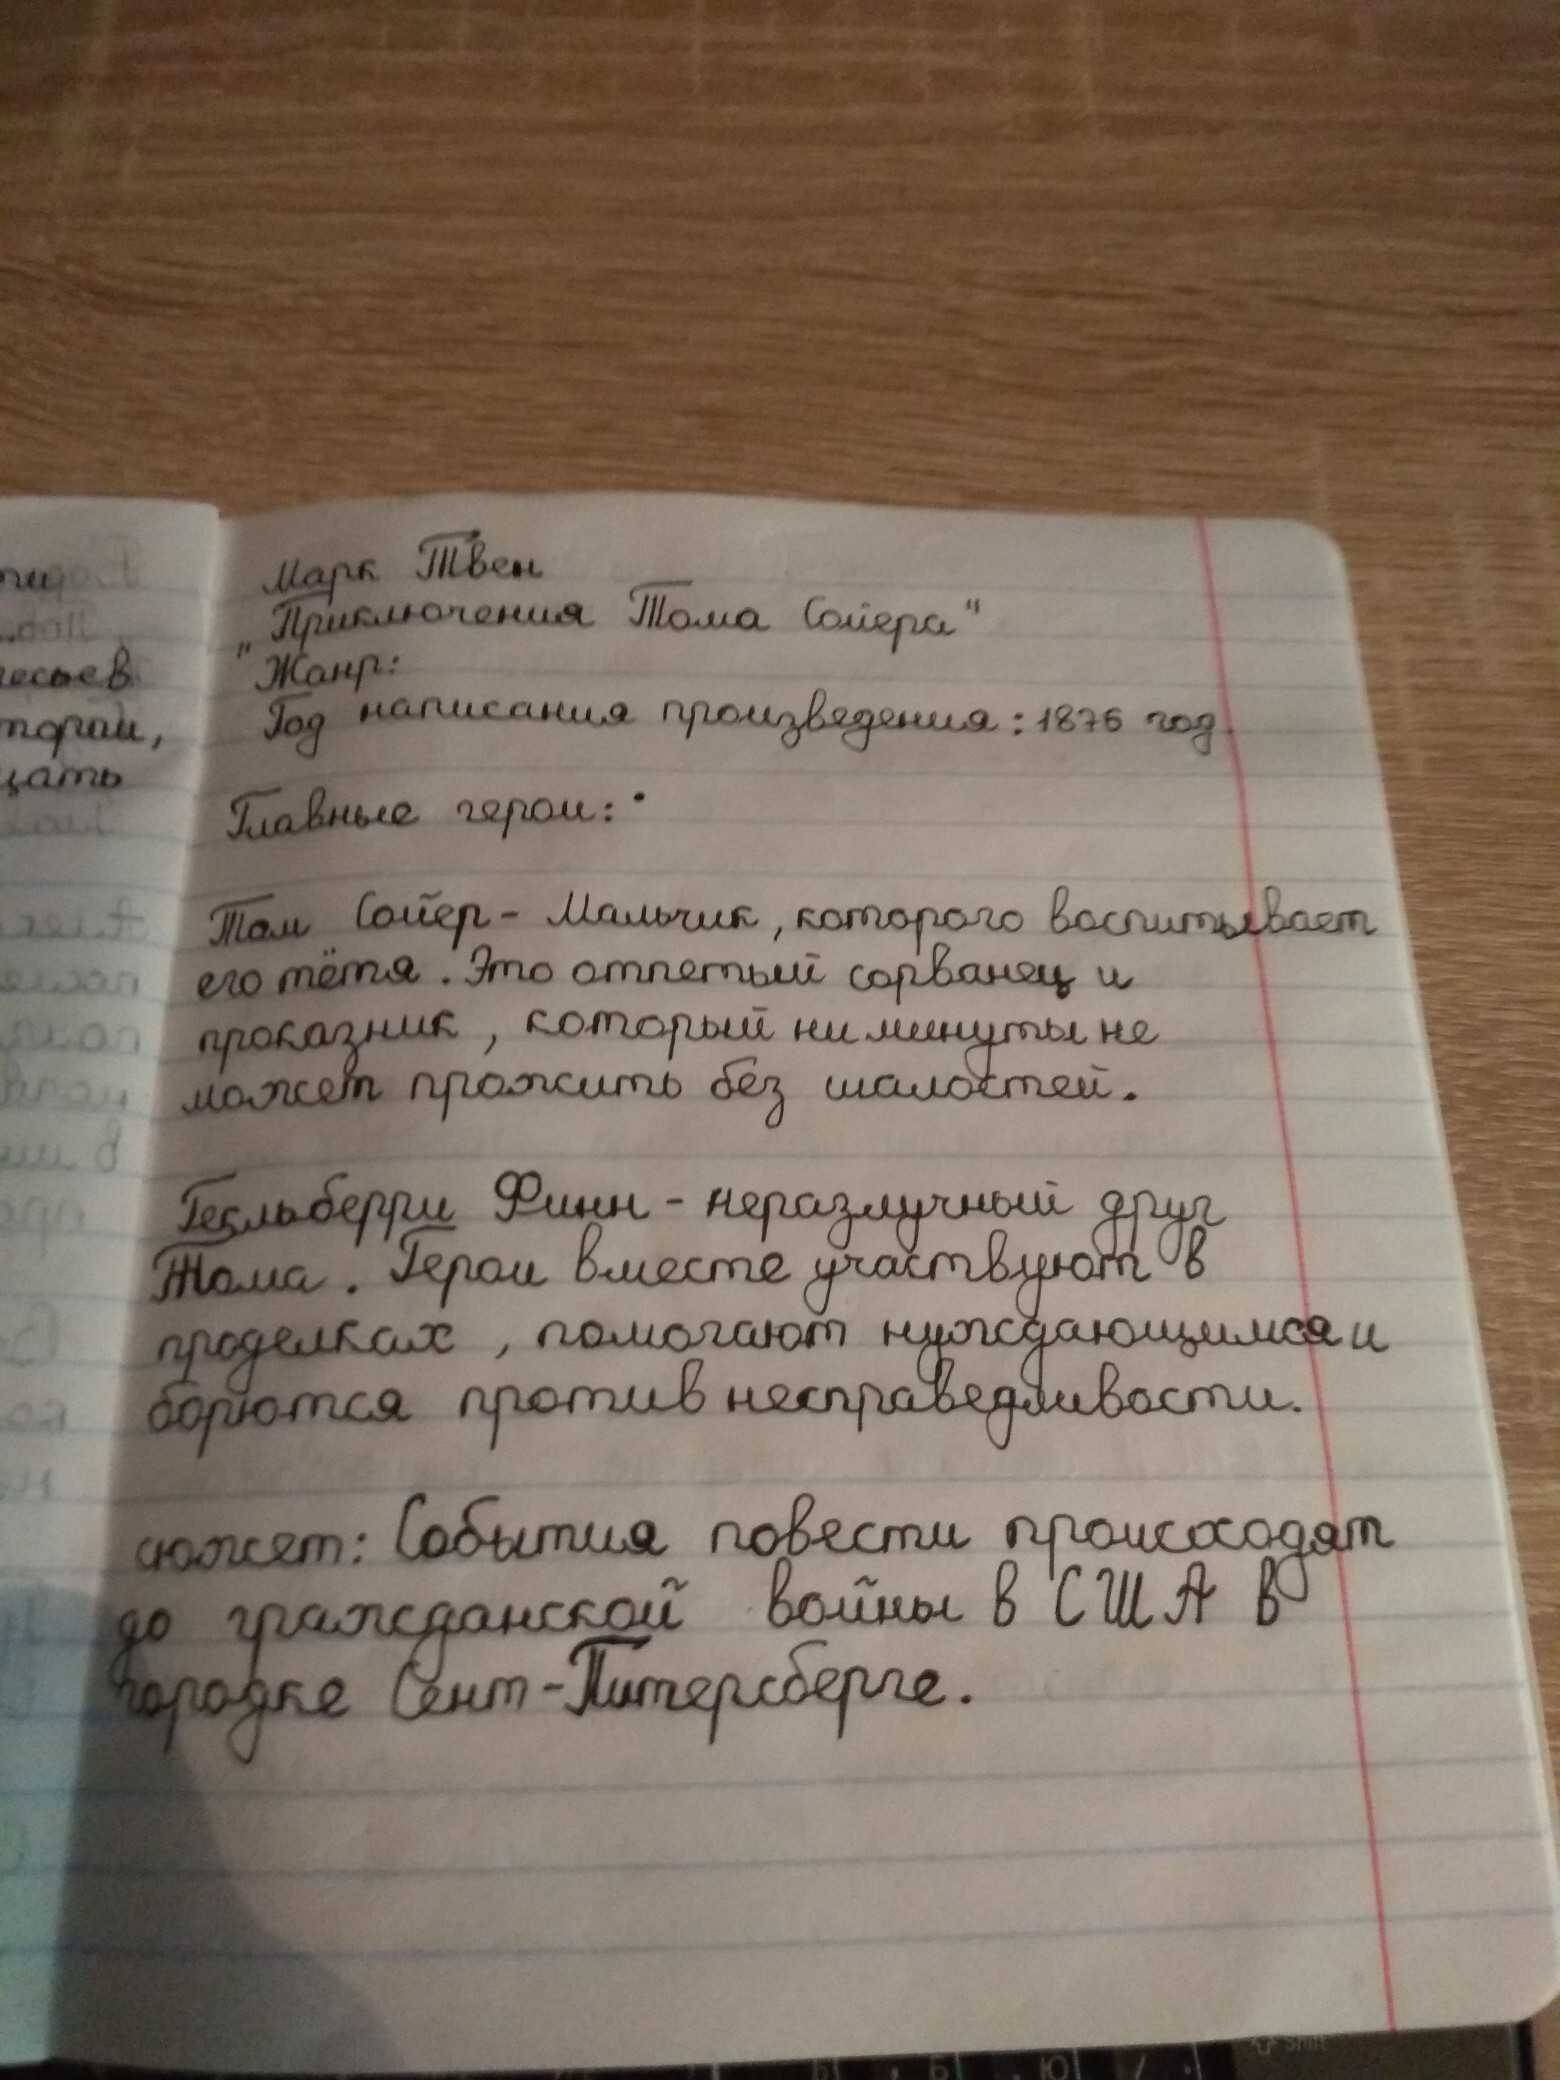 Марк Твен
„Приключения Тома Сойера"
Жанр:
Год написания произведения: 1876 год.
Главные герои:
Том Сойер - Мальчик, которого воспитывает
его тётя. Это отпетый сорванец и
проказник, который ни минуты не
может прожить без шалостей.
Гекльберри Финн - неразлучный друг
Тома. Герои вместе участвуют в
проделках, помогают нуждающимся и
борются против несправедливости.
сюжет: События повести происходят
до гражданской войны в США в
городке Сент-Питерсберге.
shift